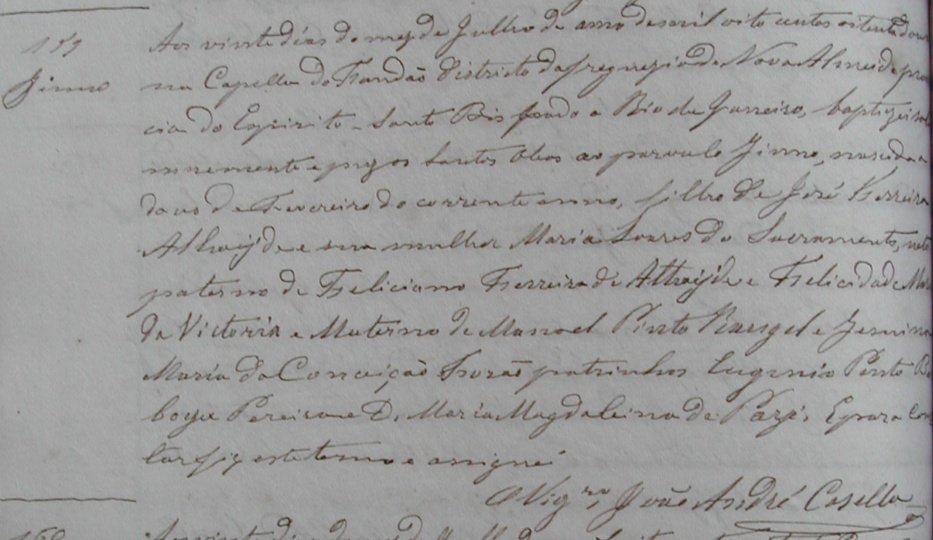 159
Jinno
Aos vinte dias do mez de Julho de anno de mil oito centos oitenta
na Capella do Fundão Districto da freguezia de Nova Almeida pro
cia do Espirito-Santo Bispado o Rio de Janeiro, baptizei sol
mnemente e puz os Santos Oleos ao parvulo Jinno, nascido a
de Fevereiro do corrente anno, filho de José Ferreira
Athayde e sua mulher Maria Soares do Sacramento, neto
paterno de Feliciano Ferreira de Athayde e Felicidade Mar
da Victoria e Materno de Manoel Pinto Rangel e Jemina
Maria da Conceição Forão patrinhos Eugenio Pinto
Pereira e D. Maria Magdaleina de Pazes, E para Cons
tar fiz este termo e assignei
O Vigrº João André Casella
160